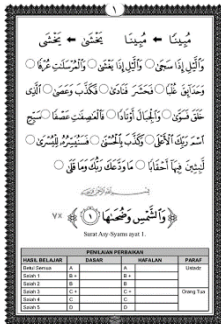 ١
مُبِينًا ← مُبِينَا يَخْشَىٰ ← يَخْشَى
وَالَّيْلِ إِذَا سَجَىٰ ○ وَالَّيْلِ إِذَا يَغْشَىٰ ○ وَالْمُرْسَلٰتِ عُرْفًا ○
وَحَدَآئِقَ غُلْبًا ○ فَحَشَرَ فَنَادَىٰ ○ فَكَذَّبَ وَعَصَىٰ ○ الَّذِى
خَلَقَ فَسَوّٰى ○ وَالْجِبَالَ أَوْتَادًا ○ فَالْعٰصِفٰتِ عَصْفًا ○ سَبِّحِ
اسْمَ رَبِّكَ الْأَعْلَى ○ وَكَذَّبَ بِالْحُسْنٰى ○ فَسَنُيَسِّرُهُۥ لِلْيُسْرٰى ○
لٰبِثِينَ فِيهَآ أَحْقَابًا ○ مَا وَدَّعَكَ رَبُّكَ وَمَا قَلٰى ○
٧٨ وَالشَّمْسِ وَضُحٰىهَا ﴿١﴾
Surat Asy-Syams ayat 1.
PENILAIAN PERBAIKAN
HASIL BELAJAR DASAR HAFALAN PARAF
Betul Semua A A Ustadz
Salah 1 B + B +
Salah 2 B B
Salah 3 C + C + Orang Tua
Salah 4 C C
Salah 5 D D